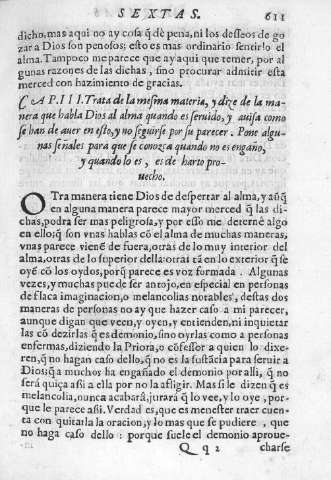 SEXTAS. 611
dicho, mas aqui no ay cosa q̃ dè pena, ni los desseos de go
zar a Dios son penosos; esto es mas ordinario sentirlo el
alma. Tampoco me parece que ay aqui que temer, por al
gunas razones de las dichas, sino procurar admitir esta
merced con hazimiento de gracias.
CAP. III. Trata de la mesma materia, y dize de la ma
nera que habla Dios al alma quando es seruido, y auisa como
se han de auer en esto, y no seguirse por su parecer. Pone algu-
nas señales para que se conozca quando no es engaño,
y quando lo es, es de harto pro-
uecho.
OTra manera tiene Dios de despertar al alma, y aũq̃
en alguna manera parece mayor merced q̃ las di-
chas, podra ser mas peligrosa, y por esso me deternè algo
en ello; q̃ son vnas hablas cõ el alma de muchas maneras,
vnas parece vienẽ de fuera, otras de lo muy interior del
alma, otras de lo superior della: otras tã en lo exterior q̃ se
oyẽ cõ los oydos, porq̃ parece es voz formada. Algunas
vezes, y muchas puede ser antojo, en especial en personas
de flaca imaginacion, o melancolias notables, destas dos
maneras de personas no ay que hazer caso a mi parecer,
aunque digan que veen, y oyen, y entienden, ni inquietar
las cõ dezirlas q̃ es demonio, sino oyrlas como a personas
enfermas, diziendo la Priora, o cõfessor a quien lo dixe-
ren, q̃ no hagan caso dello, q̃ no es la sustãcia para seruir a
Dios: q̃ a muchos ha engañado el demonio por alli, q̃ no
serà quiça assi a ella por no la afligir. Mas si le dizen q̃ es
melancolia, nunca acabarà, jurarà q̃ lo vee, y lo oye, por-
que le parece assi. Verdad es, que es menester traer cuen-
ta con quitarla la oracion, y lo mas que se pudiere, que
no haga caso dello: porque suele el demonio aproue-
Qq 2 charse